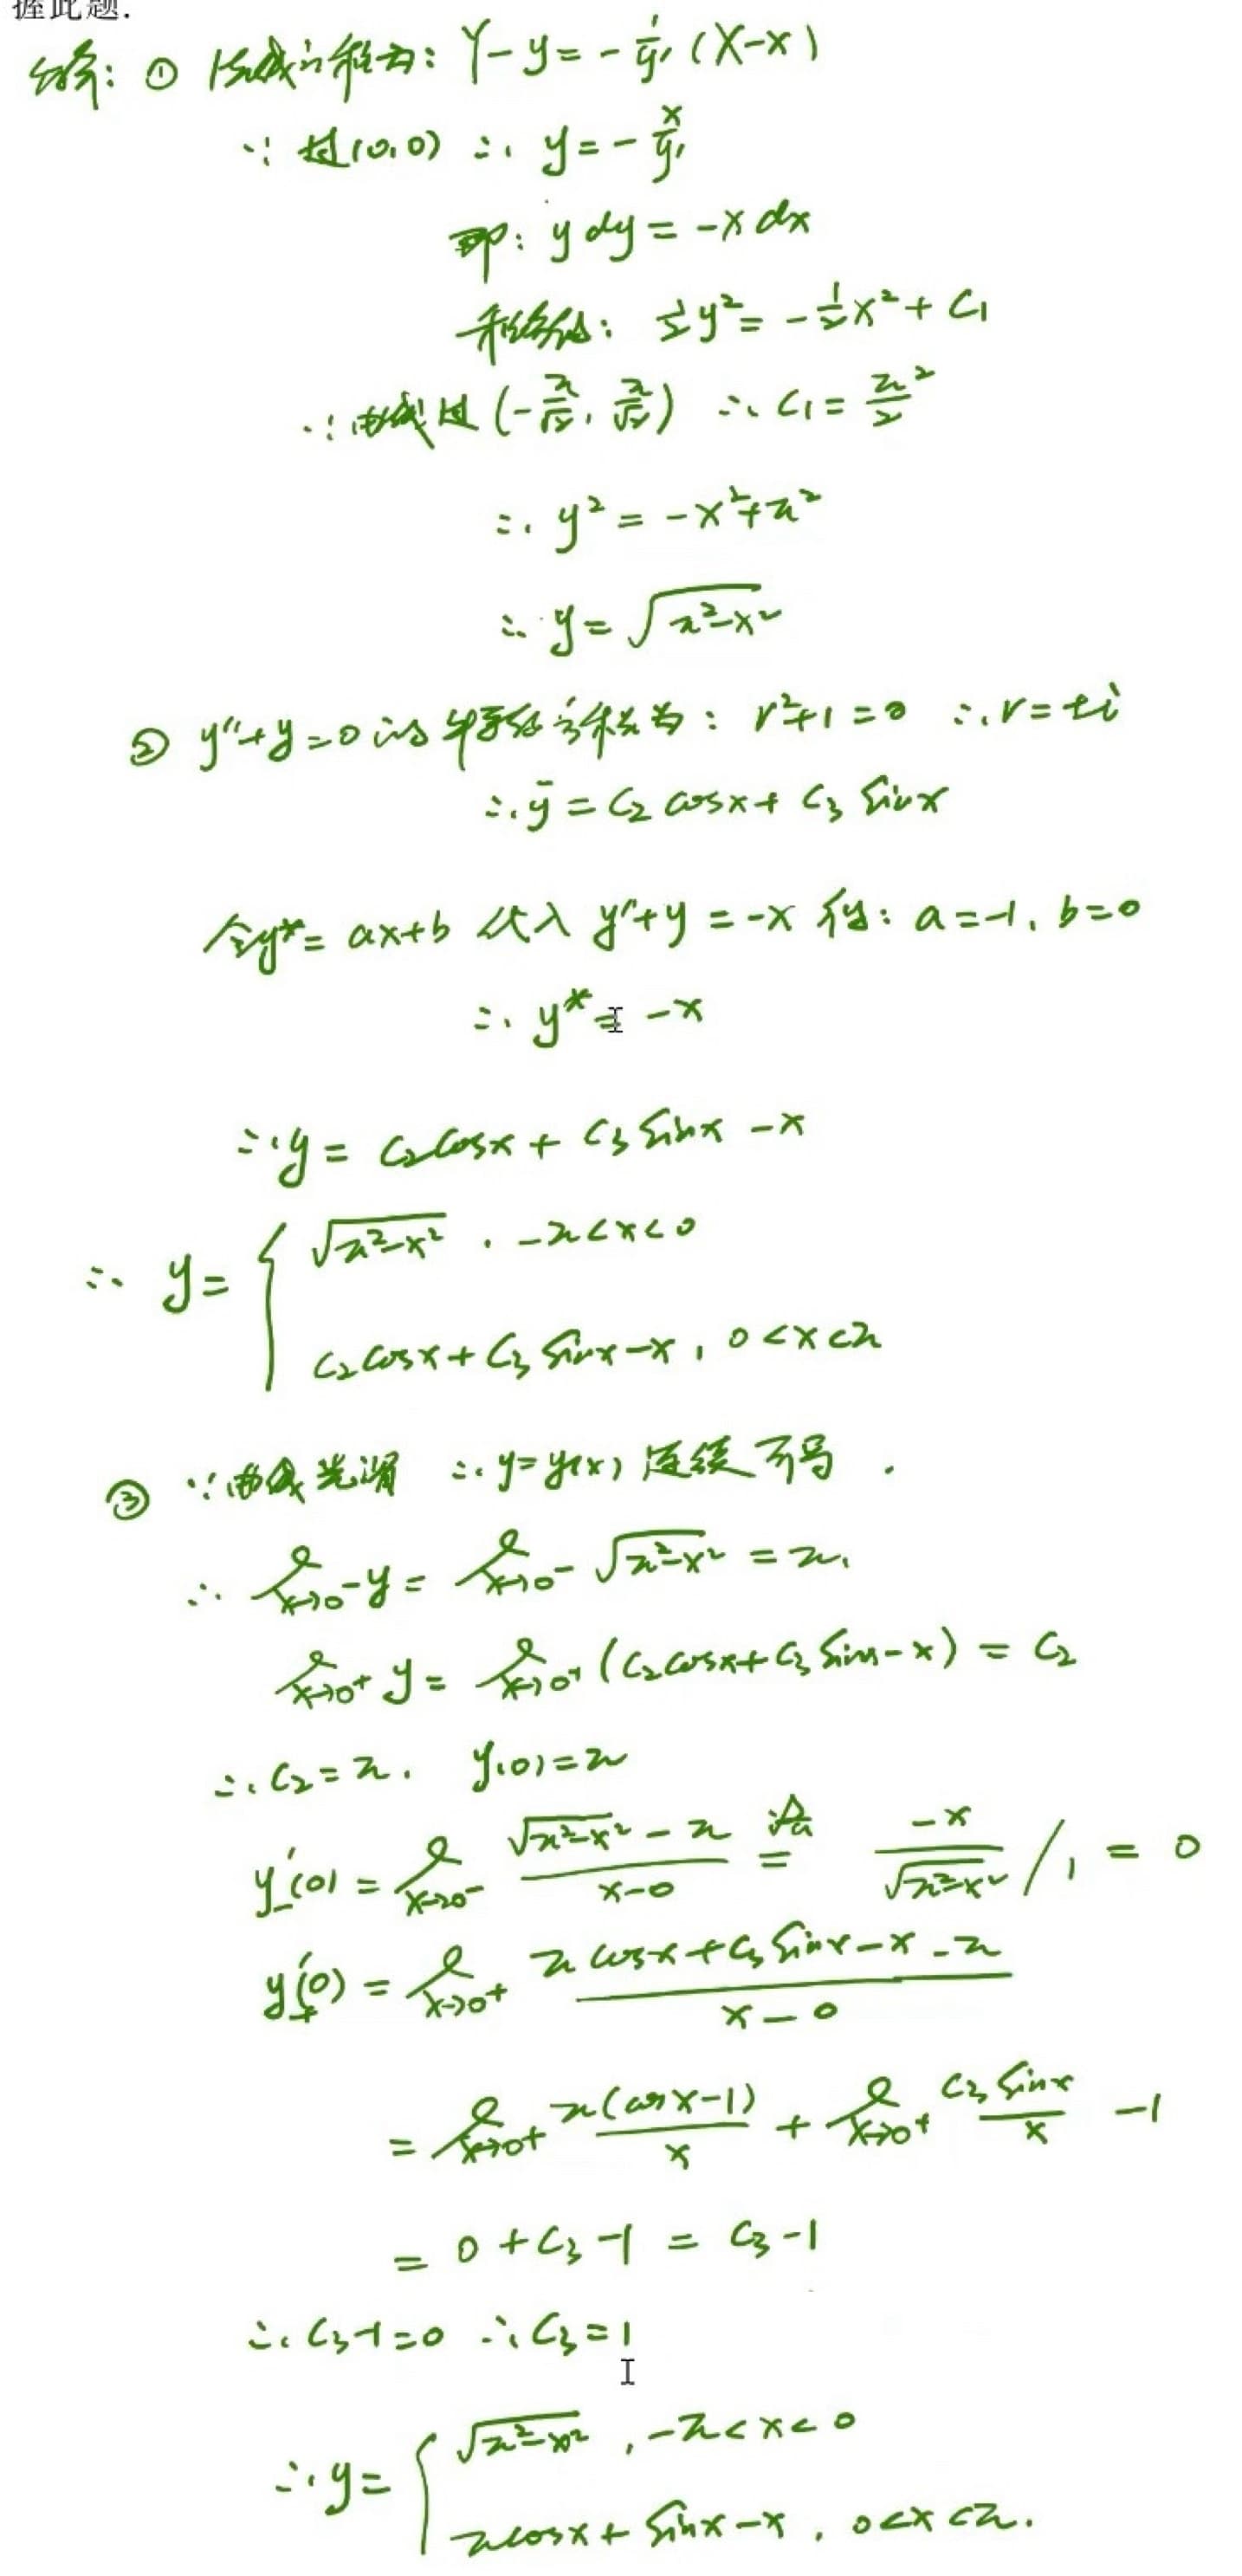 握此题.
解: ① 法线方程为: Y-y=-1/y'(X-x)
∵ 过(0,0) ∴ y=-x/y'
即: ydy=-xdx
积分得: 1/2y²=-1/2x²+C₁
∵曲线过(-π/√2, π/√2) ∴ C₁=π²/2
∴ y²=-x²+π²
∴ y=√(π²-x²)
② y''+y=0的特征方程为: r²+1=0 ∴r=±i
∴ȳ=C₂cosx+C₃sinx
令y*=ax+b 代入 y''+y=-x 得: a=-1, b=0
∴ y*=-x
∴y=C₂cosx+C₃sinx-x
∴ y={ √(π²-x²), -π<x<0
C₂cosx+C₃sinx-x, 0<x<π
③ ∵曲线光滑 ∴y=y(x)连续可导.
∴ lim x→0⁻ y=lim x→0⁻ √(π²-x²)=π,
lim x→0⁺ y=lim x→0⁺ (C₂cosx+C₃sinx-x)=C₂
∴C₂=π, y(0)=π
y'₋(0)=lim x→0⁻ (√(π²-x²)-π)/(x-0) 洛必达= -x/√(π²-x²) / 1 = 0
y'₊(0)=lim x→0⁺ (πcosx+C₃sinx-x-π)/(x-0)
=lim x→0⁺ π(cosx-1)/x + lim x→0⁺ C₃sinx/x -1
=0+C₃-1=C₃-1
∴C₃-1=0 ∴C₃=1
∴y={ √(π²-x²), -π<x<0
πcosx+sinx-x, 0<x<π.